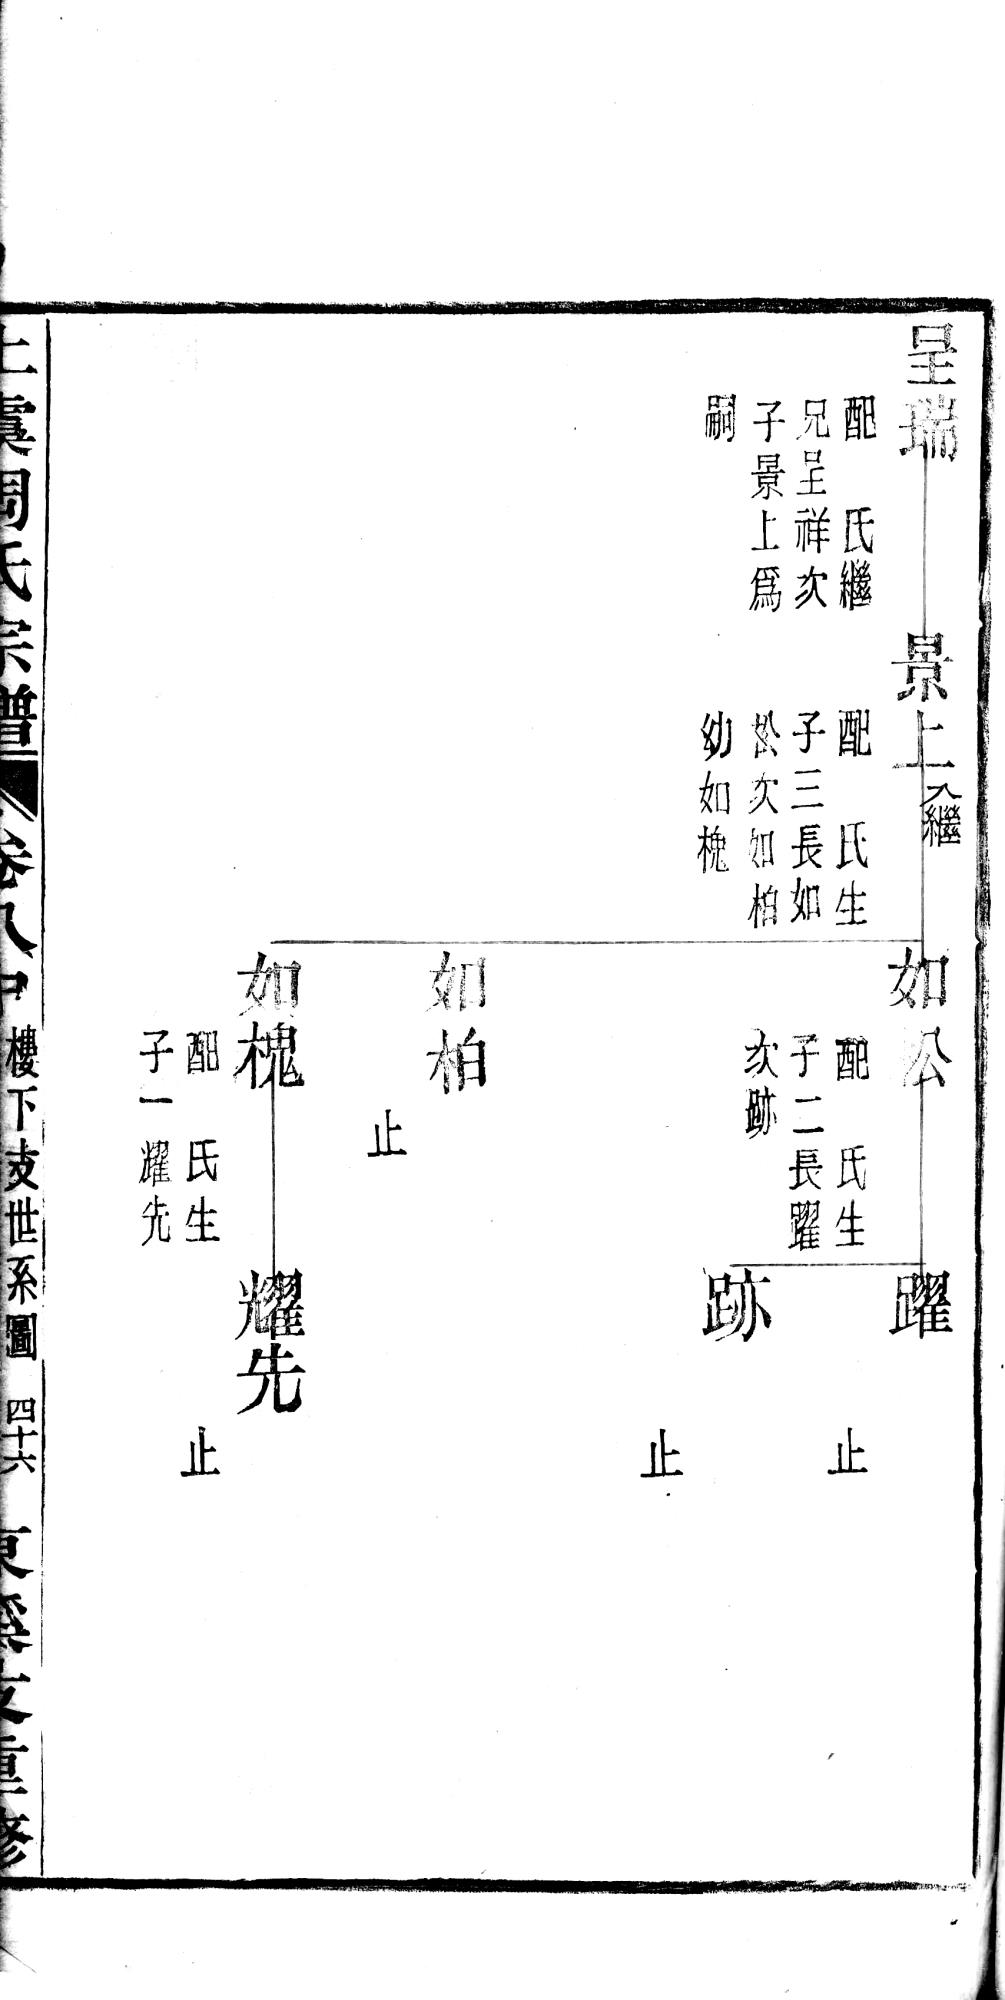 呈瑞
配　氏繼
兄呈祥次
子景上爲
嗣
景上入繼
配　氏生
子三長如
松次如柏
幼如槐
如松
配　氏生
子二長躍
次跡
躍
止
跡
止
如柏
止
如槐
配　氏生
子一耀先
耀先
止
上虞周氏宗譜　卷八中　樓下支世系圖　四十六　東溪支重修